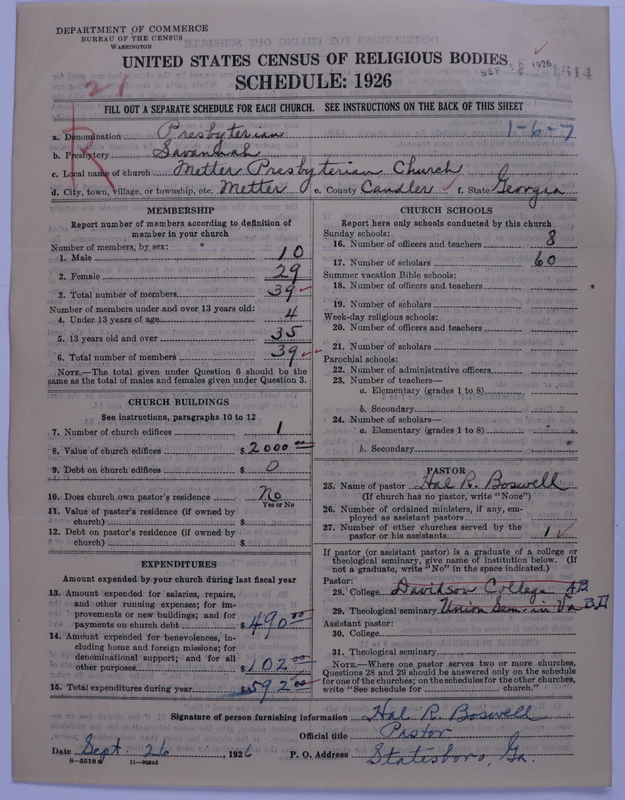 DEPARTMENT OF COMMERCE
BUREAU OF THE CENSUS
WASHINGTON
UNITED STATES CENSUS OF RELIGIOUS BODIES
SCHEDULE: 1926
SEP 1926
21
FILL OUT A SEPARATE SCHEDULE FOR EACH CHURCH. SEE INSTRUCTIONS ON THE BACK OF THIS SHEET
R
a. Denomination Presbyterian 1-6-7
b. Presbytery Savannah
c. Local name of church Metter Presbyterian Church
d. City, town, village, or township, etc. Metter e. County Candler f. State Georgia
MEMBERSHIP
Report number of members according to definition of
member in your church
Number of members, by sex:
1. Male 10
2. Female 29
3. Total number of members 39
Number of members under and over 13 years old:
4. Under 13 years of age 4
5. 13 years old and over 35
6. Total number of members 39
NOTE.—The total given under Question 6 should be the
same as the total of males and females given under Question 3.
CHURCH BUILDINGS
See instructions, paragraphs 10 to 12
7. Number of church edifices 1
8. Value of church edifices $2000 00
9. Debt on church edifices $ 0
10. Does church own pastor's residence No
Yes or No
11. Value of pastor's residence (if owned by
church) $
12. Debt on pastor's residence (if owned by
church) $
EXPENDITURES
Amount expended by your church during last fiscal year
13. Amount expended for salaries, repairs,
and other running expenses; for im-
provements or new buildings; and for
payments on church debt $ 490 00
14. Amount expended for benevolences, in-
cluding home and foreign missions; for
denominational support; and for all
other purposes $ 102 00
15. Total expenditures during year $ 592 00
CHURCH SCHOOLS
Report here only schools conducted by this church
Sunday schools:
16. Number of officers and teachers 8
17. Number of scholars 60
Summer vacation Bible schools:
18. Number of officers and teachers
19. Number of scholars
Week-day religious schools:
20. Number of officers and teachers
21. Number of scholars
Parochial schools:
22. Number of administrative officers
23. Number of teachers—
a. Elementary (grades 1 to 8)
b. Secondary
24. Number of scholars—
a. Elementary (grades 1 to 8)
b. Secondary
PASTOR
25. Name of pastor Hal R. Boswell
(If church has no pastor, write "None")
26. Number of ordained ministers, if any, em-
ployed as assistant pastors
27. Number of other churches served by the
pastor or his assistants 1
If pastor (or assistant pastor) is a graduate of a college or
theological seminary, give name of institution below. (If
not a graduate, write "No" in the space indicated.)
Pastor:
28. College Davidson College A.B.
29. Theological seminary Union Sem. in Va B.D
Assistant pastor:
30. College
31. Theological seminary
NOTE.—Where one pastor serves two or more churches,
Questions 28 and 29 should be answered only on the schedule
for one of the churches; on the schedules for the other churches,
write "See schedule for church."
Signature of person furnishing information Hal R. Boswell
Official title Pastor
Date Sept. 26, 1926 P. O. Address Statesboro, Ga.
8—5518